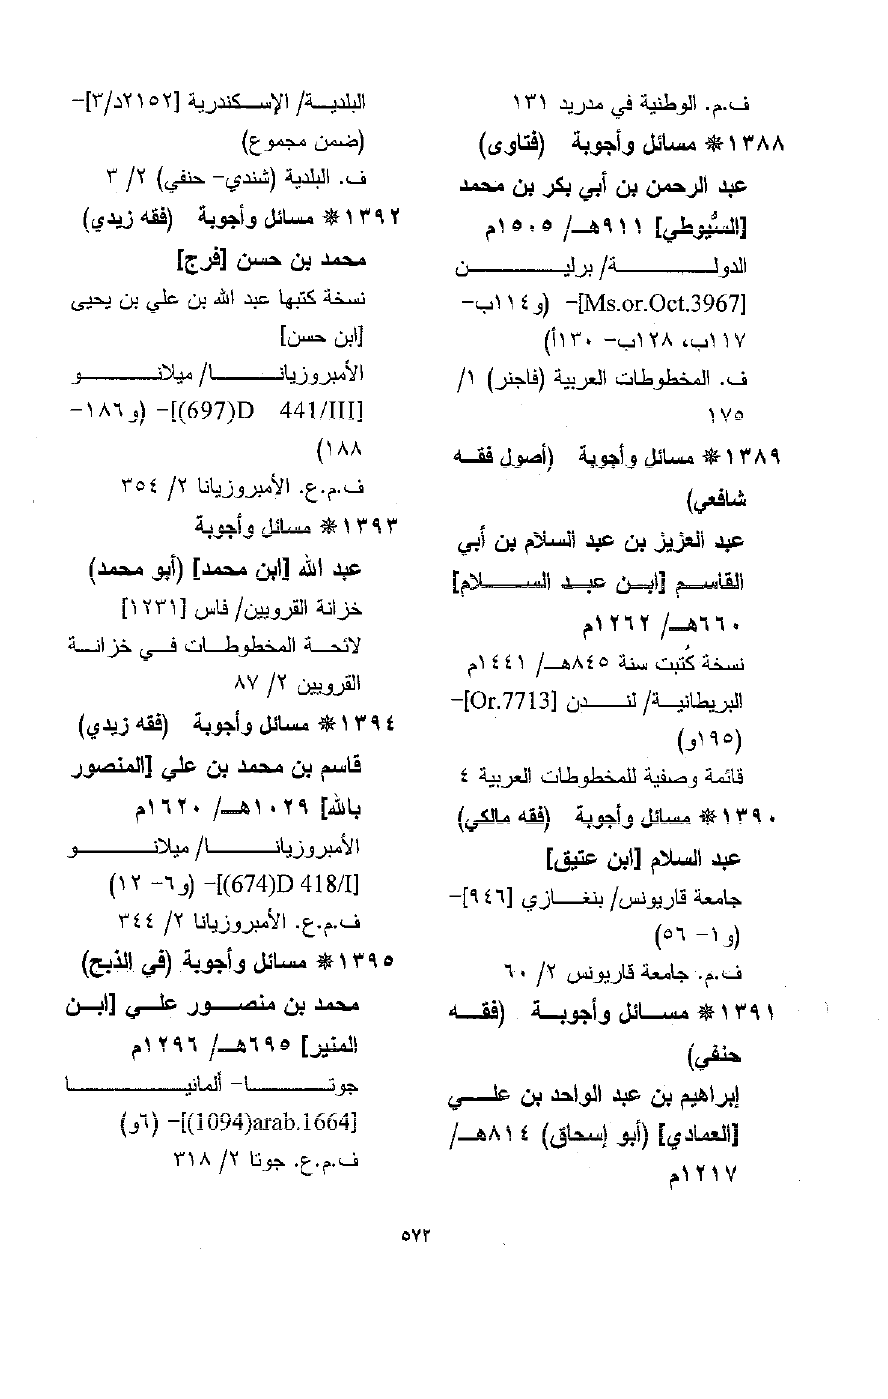 ف.م. الوطنية في مدريد ١٣١
١٣٨٨ ❋ مسائل وأجوبة (فتاوى)
عبد الرحمن بن أبي بكر بن محمد
[السُّيوطي] ٩١١هـ/ ١٥٠٥م
الدولة/ برلين
[Ms.or.Oct.3967]- (و١١٤ب-
١١٧ب، ١٢٨ب- ١٣٠أ)
ف. المخطوطات العربية (فاجنر) ١/
١٧٥
١٣٨٩ ❋ مسائل وأجوبة (أصول فقه
شافعي)
عبد العزيز بن عبد السلام بن أبي
القاسم [ابن عبد السلام]
٦٦٠هـ/ ١٢٦٢م
نسخة كُتبت سنة ٨٤٥هـ/ ١٤٤١م
البريطانية/ لندن [Or.7713]-
(١٩٥و)
قائمة وصفية للمخطوطات العربية ٤
١٣٩٠ ❋ مسائل وأجوبة (فقه مالكي)
عبد السلام [ابن عتيق]
جامعة قاريونس/ بنغازي [٩٤٦]-
(و١- ٥٦)
ف.م. جامعة قاريونس ٢/ ٦٠
١٣٩١ ❋ مسائل وأجوبة (فقه
حنفي)
إبراهيم بن عبد الواحد بن علي
[العمادي] (أبو إسحاق) ٨١٤هـ/
١٢١٧م
البلدية/ الإسكندرية [٢١٥٢د/٣]-
(ضمن مجموع)
ف. البلدية (شندي- حنفي) ٢/ ٣
١٣٩٢ ❋ مسائل وأجوبة (فقه زيدي)
محمد بن حسن [فرج]
نسخة كتبها عبد الله بن علي بن يحيى
[ابن حسن]
الأمبروزيانا/ ميلانو
[441/III D(697)]- (و١٨٦-
١٨٨)
ف.م.ع. الأمبروزيانا ٢/ ٣٥٤
١٣٩٣ ❋ مسائل وأجوبة
عبد الله [ابن محمد] (أبو محمد)
خزانة القرويين/ فاس [١٢٣١]
لائحة المخطوطات في خزانة
القرويين ٢/ ٨٧
١٣٩٤ ❋ مسائل وأجوبة (فقه زيدي)
قاسم بن محمد بن علي [المنصور
بالله] ١٠٢٩هـ/ ١٦٢٠م
الأمبروزيانا/ ميلانو
[418/I D(674)]- (و٦- ١٢)
ف.م.ع. الأمبروزيانا ٢/ ٣٤٤
١٣٩٥ ❋ مسائل وأجوبة (في الذبح)
محمد بن منصور علي [ابن
المنير] ٦٩٥هـ/ ١٢٩٦م
جوتا- ألمانيا
[arab.1664(1094)]- (٦و)
ف.م.ع. جوتا ٢/ ٣١٨
٥٧٢